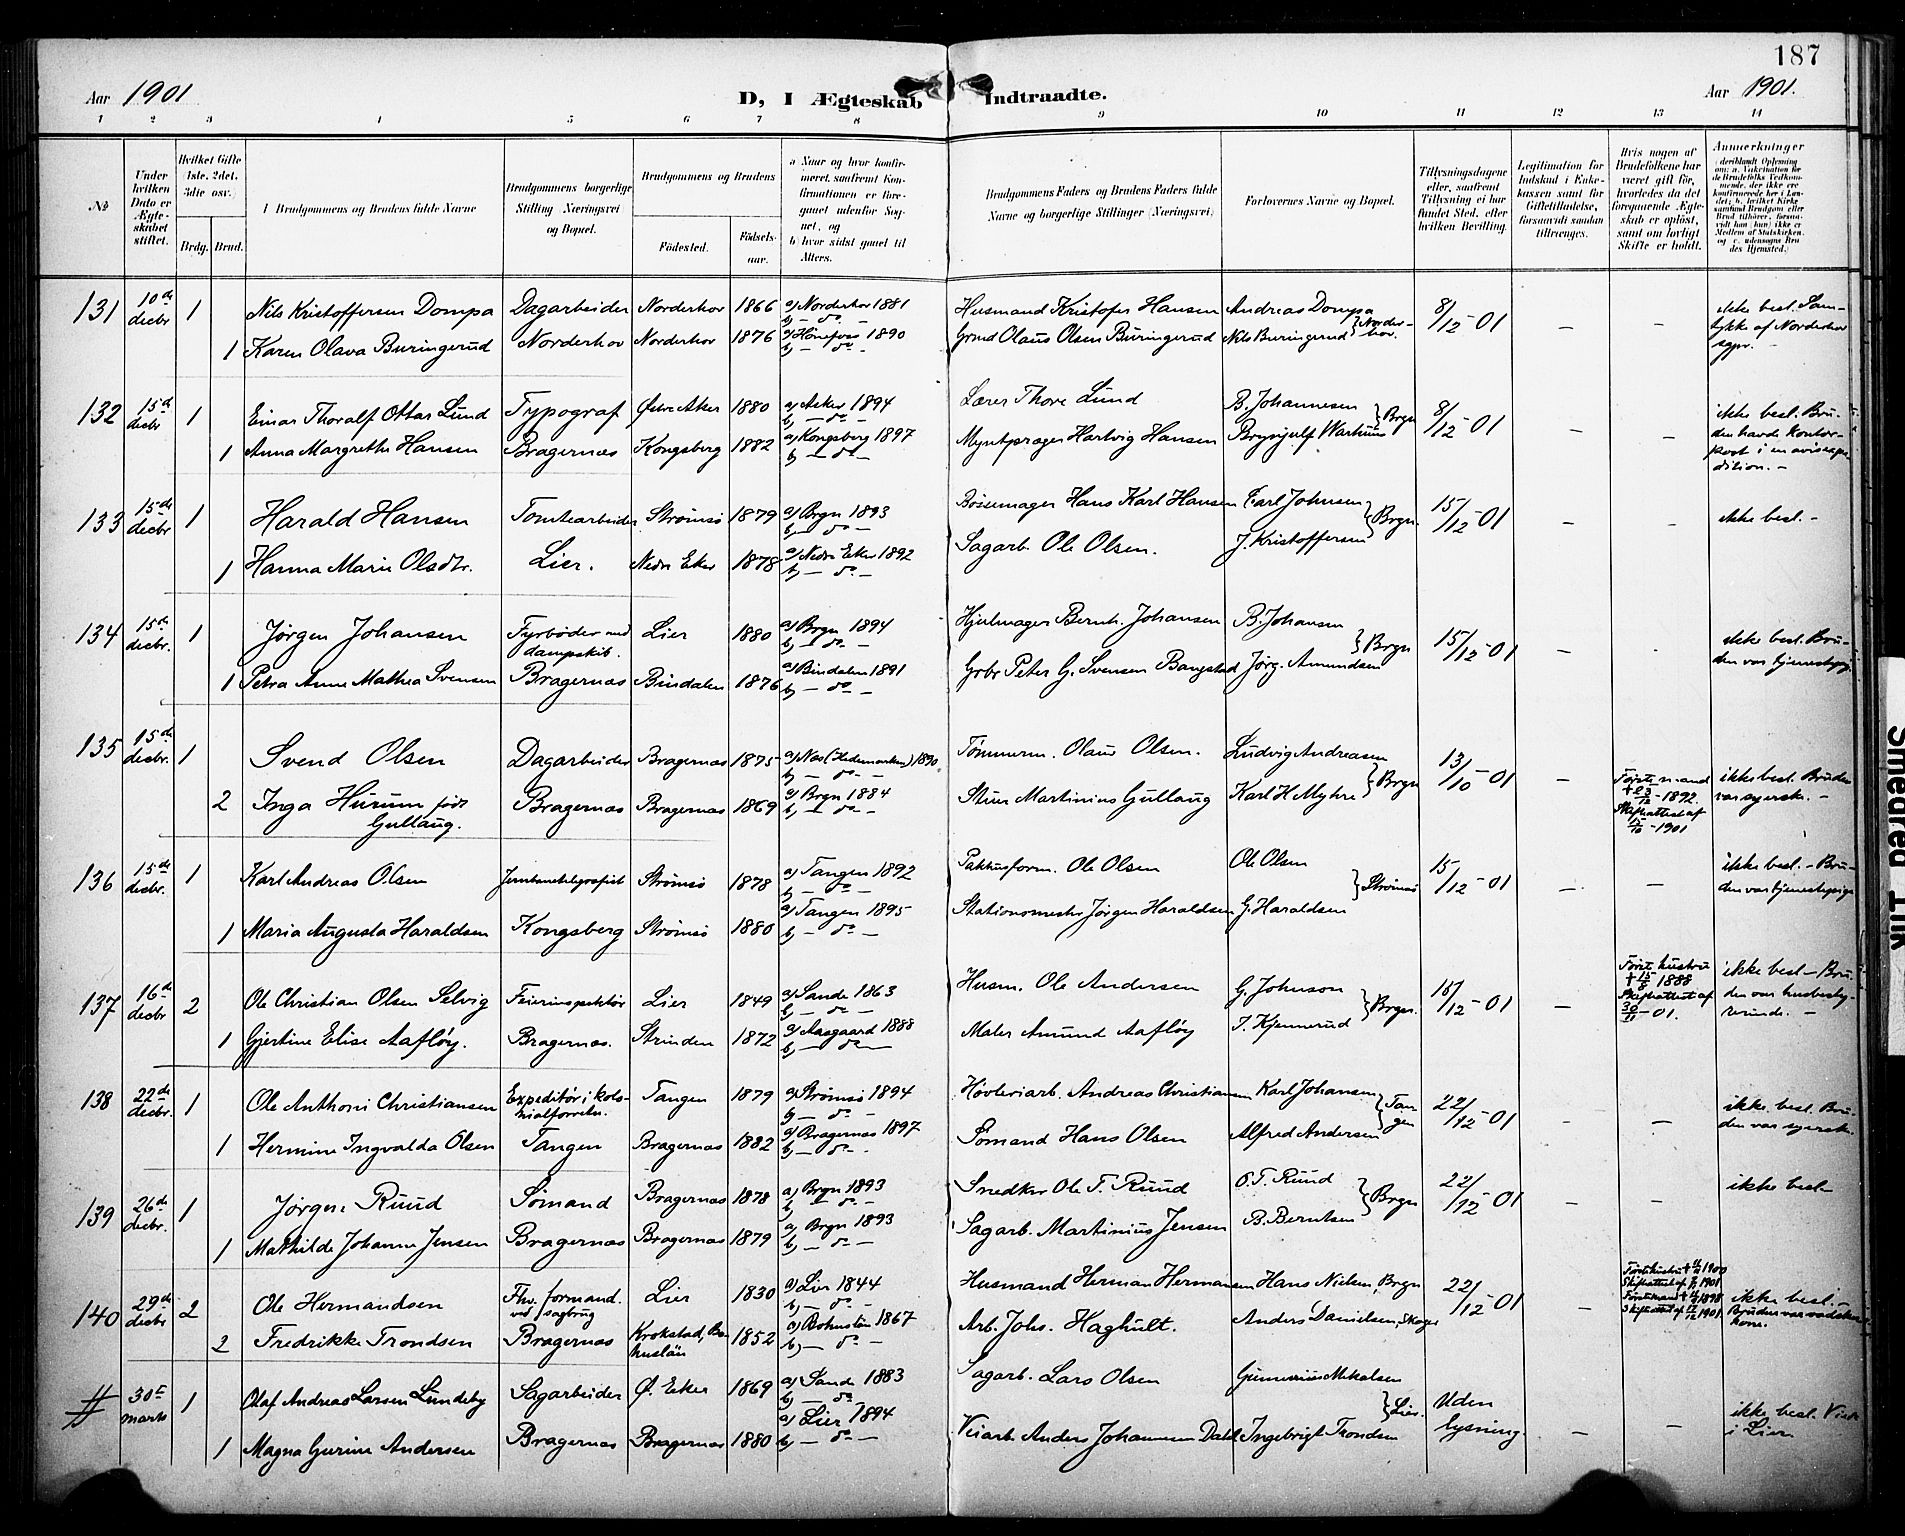 187
Aar 1901 D, I Ægteskab Indtraadte. Aar 1901.
1 2 3 4 5 6 7 8 9 10 11 12 13 14
No
Under hvilken Dato er Ægteskabet stiftet.
Hvilket Gifte (1ste, 2det, 3die osv.)
Brdg. Brud.
Brudgommens og Brudens fulde Navne
Brudgommens borgerlige Stilling Næringsvei og Bopæl.
Brudgommens og Brudens
Fødested. Fødselsaar.
a Naar og hvor konfirmeret, saafremt Konfirmationen er foregaaet udenfor Sognet, og
b) hvor sidst gaaet til Alters.
Brudgommens Faders og Brudens Faders fulde Navne og borgerlige Stillinger (Næringsvei)
Forlovernes Navne og Bopæl.
Tillysningsdagene eller, saafremt Tillysning ei har fundet Sted, efter hvilken Bevilling.
Legitimation for Indskud i Enkekassen samt for Giftetilladelse, forsaavidt saadan tiltrænges.
Hvis nogen af Brudefolkene har været gift før, hvorledes da det foregaaende Ægteskab er opløst, samt om lovligt Skifte er holdt.
Anmærkninger
131 10de decbr 1 Nils Kristoffersen Dompa Dagarbeider Norderhov 1866 a) Norderhov 1881 b) — do — Husmand Kristofer Hansen Andreas Dompa 8/12-01 — — ikke besl. Sam-
1 Karen Olava Buringerud Norderhov Norderhov 1876 a) Hönefos 1890 b) — do — Grmd Olaus Olsen Buringerud Nils Buringerud } Norderhov. tykke af Norderhov sgpr.
132 15de decbr 1 Einar Thoralf Ottar Lund Typograf Østre Aker 1880 a) Asker 1894 b) — do — Lærer Thore Lund B. Johannesen } Brgn 8/12-01 — — ikke besl. Bru-
1 Anna Margrethe Hansen Bragernæs Kongsberg 1882 a) Kongsberg 1897 b) — do — Myntpræger Hartvig Hansen Brynjulf Warhuus den havde kontor-
post i en avisexpe-
dition. —
133 15de decbr 1 Harald Hansen Tomtearbeider Strømsö 1879 a) Brgn 1893 b) — do — Bøssemager Hans Karl Hansen Carl Johnsen } Brgn. 15/12-01 — — ikke besl. —
1 Hanna Marie Olsdtr. Lier. Nedre Eker 1878 a) Nedre Eker 1892 b) — do — Sagarb. Ole Olsen. J. Kristoffersen
134 15de decbr. 1 Jørgen Johansen Fyrbøder ved dampskib. Lier 1880 a) Brgn 1894 b) — do — Hjulmager Bernh. Johansen B. Johansen } Brgn 15/12-01 — ikke besl. Bru-
1 Petra Anne Mathea Svensen Bragernæs Bindalen 1876 a) Bindalen 1891 b) — do — Grbr Peter G. Svensen Bangstad Jørg. Amundsen den var tjenestepige
135 15de decbr. 1 Svend Olsen Dagarbeider Bragernæs 1875 a) Næs (Hedemarken) 1890 b) — do — Tømmerm. Olaus Olsen. Ludvig Andreasen } Brgn 13/10-01 — Første mand ikke besl. Bruden
2 Inga Hurum født Gullaug. Bragernæs Bragernæs 1869 a) Brgn 1884 b) — do — Stuer Martinius Gullaug Karl H Myhre † 23/12-1892. Skifteattest af 15/10-1901 var syerske. —
136 15de decbr. 1 Karl Andreas Olsen Jernbanetelegrafist Strømsö 1878 a) Tangen 1892 b) — do — Pakhusform. Ole Olsen Ole Olsen } Strömsö 15/12-01 — — ikke besl. — Bru-
1 Maria Augusta Haraldsen Kongsberg Strømsö 1880 a) Tangen 1895 b) — do — Stationsmester Jørgen Haraldsen G. Haraldsen den var tjenestepige
137 16de decbr 2 Ole Christian Olsen Selvig Feierinspektør Lier 1849 a) Sande 1863 b) — do — Husm. Ole Andersen G. Johnson } Brgn. 15/12-01 — Første hustru † 15/8 1888 ikke besl — Bru-
1 Gjertine Elise Aafløy. Bragernæs. Strinden 1872 a) Aasgaard 1888 b) — do — Maler Amund Aafløy T. Kjennerud Skifteattest af 30/11-01. den var husbesty-
rerinde. —
138 22de decbr. 1 Ole Anthoni Christiansen Expeditör i kolonialforretn. Tangen 1879 a) Strømsö 1894 b) — do — Høvleriarb. Andreas Christiansen Karl Johansen } Tangen 22/12-01 — — ikke besl. Bru-
1 Hermine Ingvalda Olsen Tangen Bragernæs 1882 a) Bragernæs 1897 b) — do — Sømand Hans Olsen Alfred Andersen den var syerske.
139 26de decbr. 1 Jørgen Ruud Sømand Bragernæs 1878 a) Brgn 1893 b) — do — Snedker Ole T. Ruud O. T. Ruud } Brgn 22/12-01 — — ikke besl —
1 Mathilde Johanne Jensen Bragernæs Bragernæs 1879 a) Brgn 1893 b) — do — Sagarb. Martinius Jensen B. Berntsen
140 29de decbr 2 Ole Hermandsen Fhv. formand ved sagbrug Lier 1830 a) Lier 1844 b) — do — Husmand Herman Hermansen Hans Nielsen, Brgn 22/12-01 — ikke besl. —
2 Fredrikke Trondsen Bragernæs Krokstad, Bohuslän 1852 a) Bohuslän 1867 b) — do — Arb. Johs. Haghult. Anders Danielsen, Skoger Bruden var vaskekone.
# 30te marts 1 Olaf Andreas Larsen Lundeby Sagarbeider Ø. Eker 1869 a) Sande 1883 b) — do — Sagarb. Lars Olsen Gunerius Mikalsen } Lier. Uden lysning — — ikke besl. Viet i Lier
1 Magna Gurine Andersen Bragernæs Bragernæs 1880 a) Lier 1894 b) — do — Veiarb. Anders Johannesen Dahl Ingebrigt Trondsen
Smedred Ttik